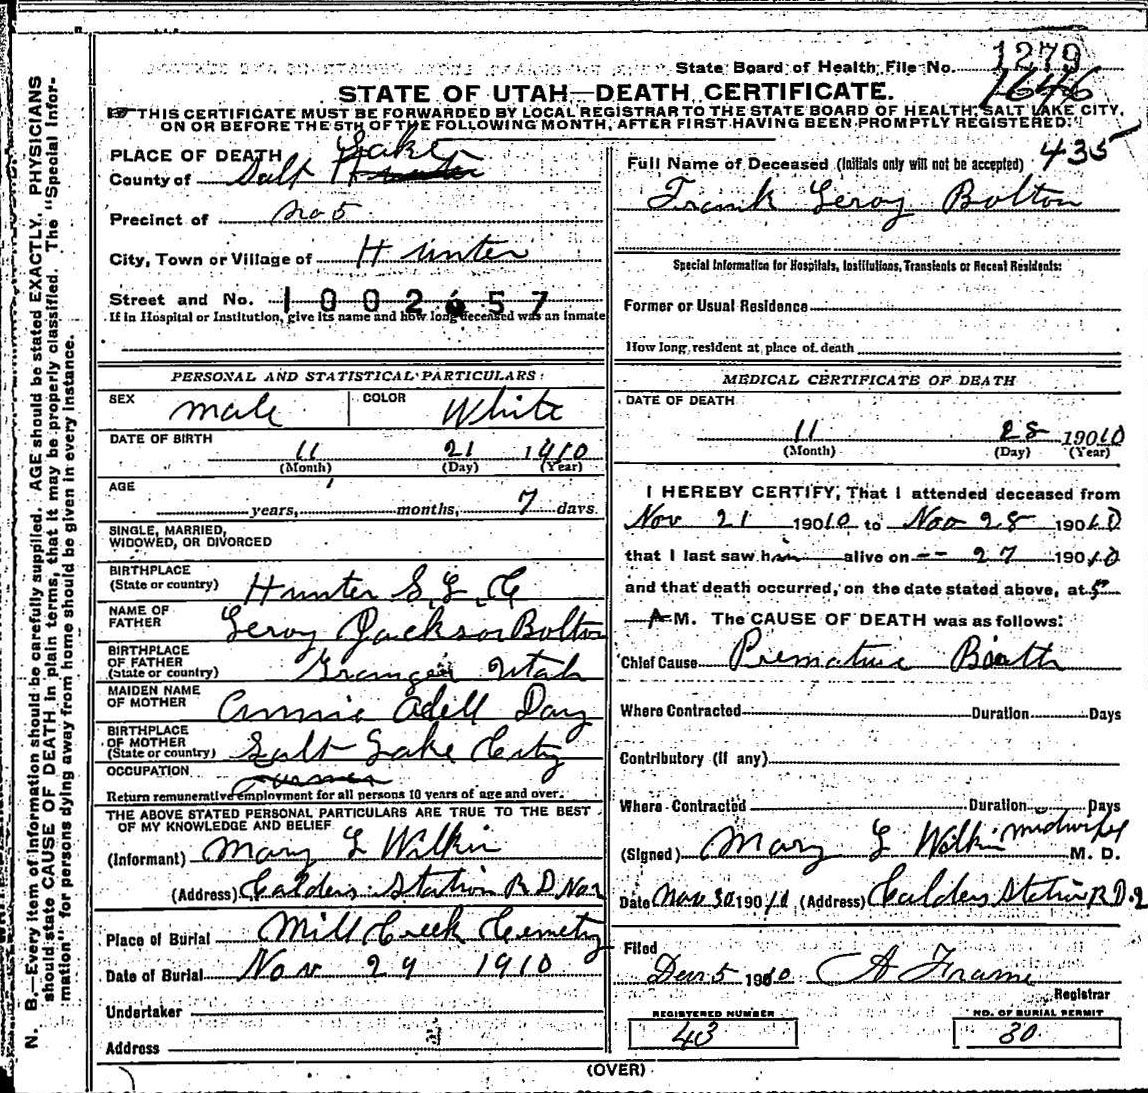 State Board of Health File No. 1279
1646
STATE OF UTAH—DEATH CERTIFICATE.
THIS CERTIFICATE MUST BE FORWARDED BY LOCAL REGISTRAR TO THE STATE BOARD OF HEALTH, SALT LAKE CITY,
ON OR BEFORE THE 5TH OF THE FOLLOWING MONTH, AFTER FIRST HAVING BEEN PROMPTLY REGISTERED.
PLACE OF DEATH
County of Salt Lake Hunter
Precinct of No 5
City, Town or Village of Hunter
Street and No. 1002657
If in Hospital or Institution, give its name and how long deceased was an inmate
PERSONAL AND STATISTICAL PARTICULARS:
SEX male COLOR White
DATE OF BIRTH 11 21 1910
(Month) (Day) (Year)
AGE
years, months, 7 days
SINGLE, MARRIED,
WIDOWED, OR DIVORCED
BIRTHPLACE
(State or country) Hunter S. L. C
NAME OF
FATHER Leroy Jackson Bolton
BIRTHPLACE
OF FATHER
(State or country) Granger Utah
MAIDEN NAME
OF MOTHER Annie Adell Day
BIRTHPLACE
OF MOTHER
(State or country) Salt Lake City
OCCUPATION Farmer
Return remunerative employment for all persons 10 years of age and over.
THE ABOVE STATED PERSONAL PARTICULARS ARE TRUE TO THE BEST
OF MY KNOWLEDGE AND BELIEF
(Informant) Mary L Wilkin
(Address) Calders Station R D No 2
Place of Burial Mill Creek Cemetry
Date of Burial Nov 29 1910
Undertaker
Address
Full Name of Deceased (Initials only will not be accepted) 435
Frank Leroy Bolton
Special Information for Hospitals, Institutions, Transients or Recent Residents:
Former or Usual Residence
How long resident at place of death
MEDICAL CERTIFICATE OF DEATH
DATE OF DEATH
11 28 19010
(Month) (Day) (Year)
I HEREBY CERTIFY, That I attended deceased from
Nov 21 19010 to Nov 28 19010
that I last saw him alive on -- 27 19010
and that death occurred, on the date stated above, at 5
A M. The CAUSE OF DEATH was as follows:
Chief Cause Premature Birth
Where Contracted Duration Days
Contributory (if any)
Where Contracted Duration Days
(Signed) Mary L Wilkin midwife M. D.
Date Nov 30 19010 (Address) Calders Station R D. 2
Filed
Dec 5 19010 A Frame
Registrar
REGISTERED NUMBER
43
NO. OF BURIAL PERMIT
30
(OVER)
N. B.—Every item of information should be carefully supplied. AGE should be stated EXACTLY. PHYSICIANS
should state CAUSE OF DEATH in plain terms, that it may be properly classified. The "Special Infor-
mation" for persons dying away from home should be given in every instance.